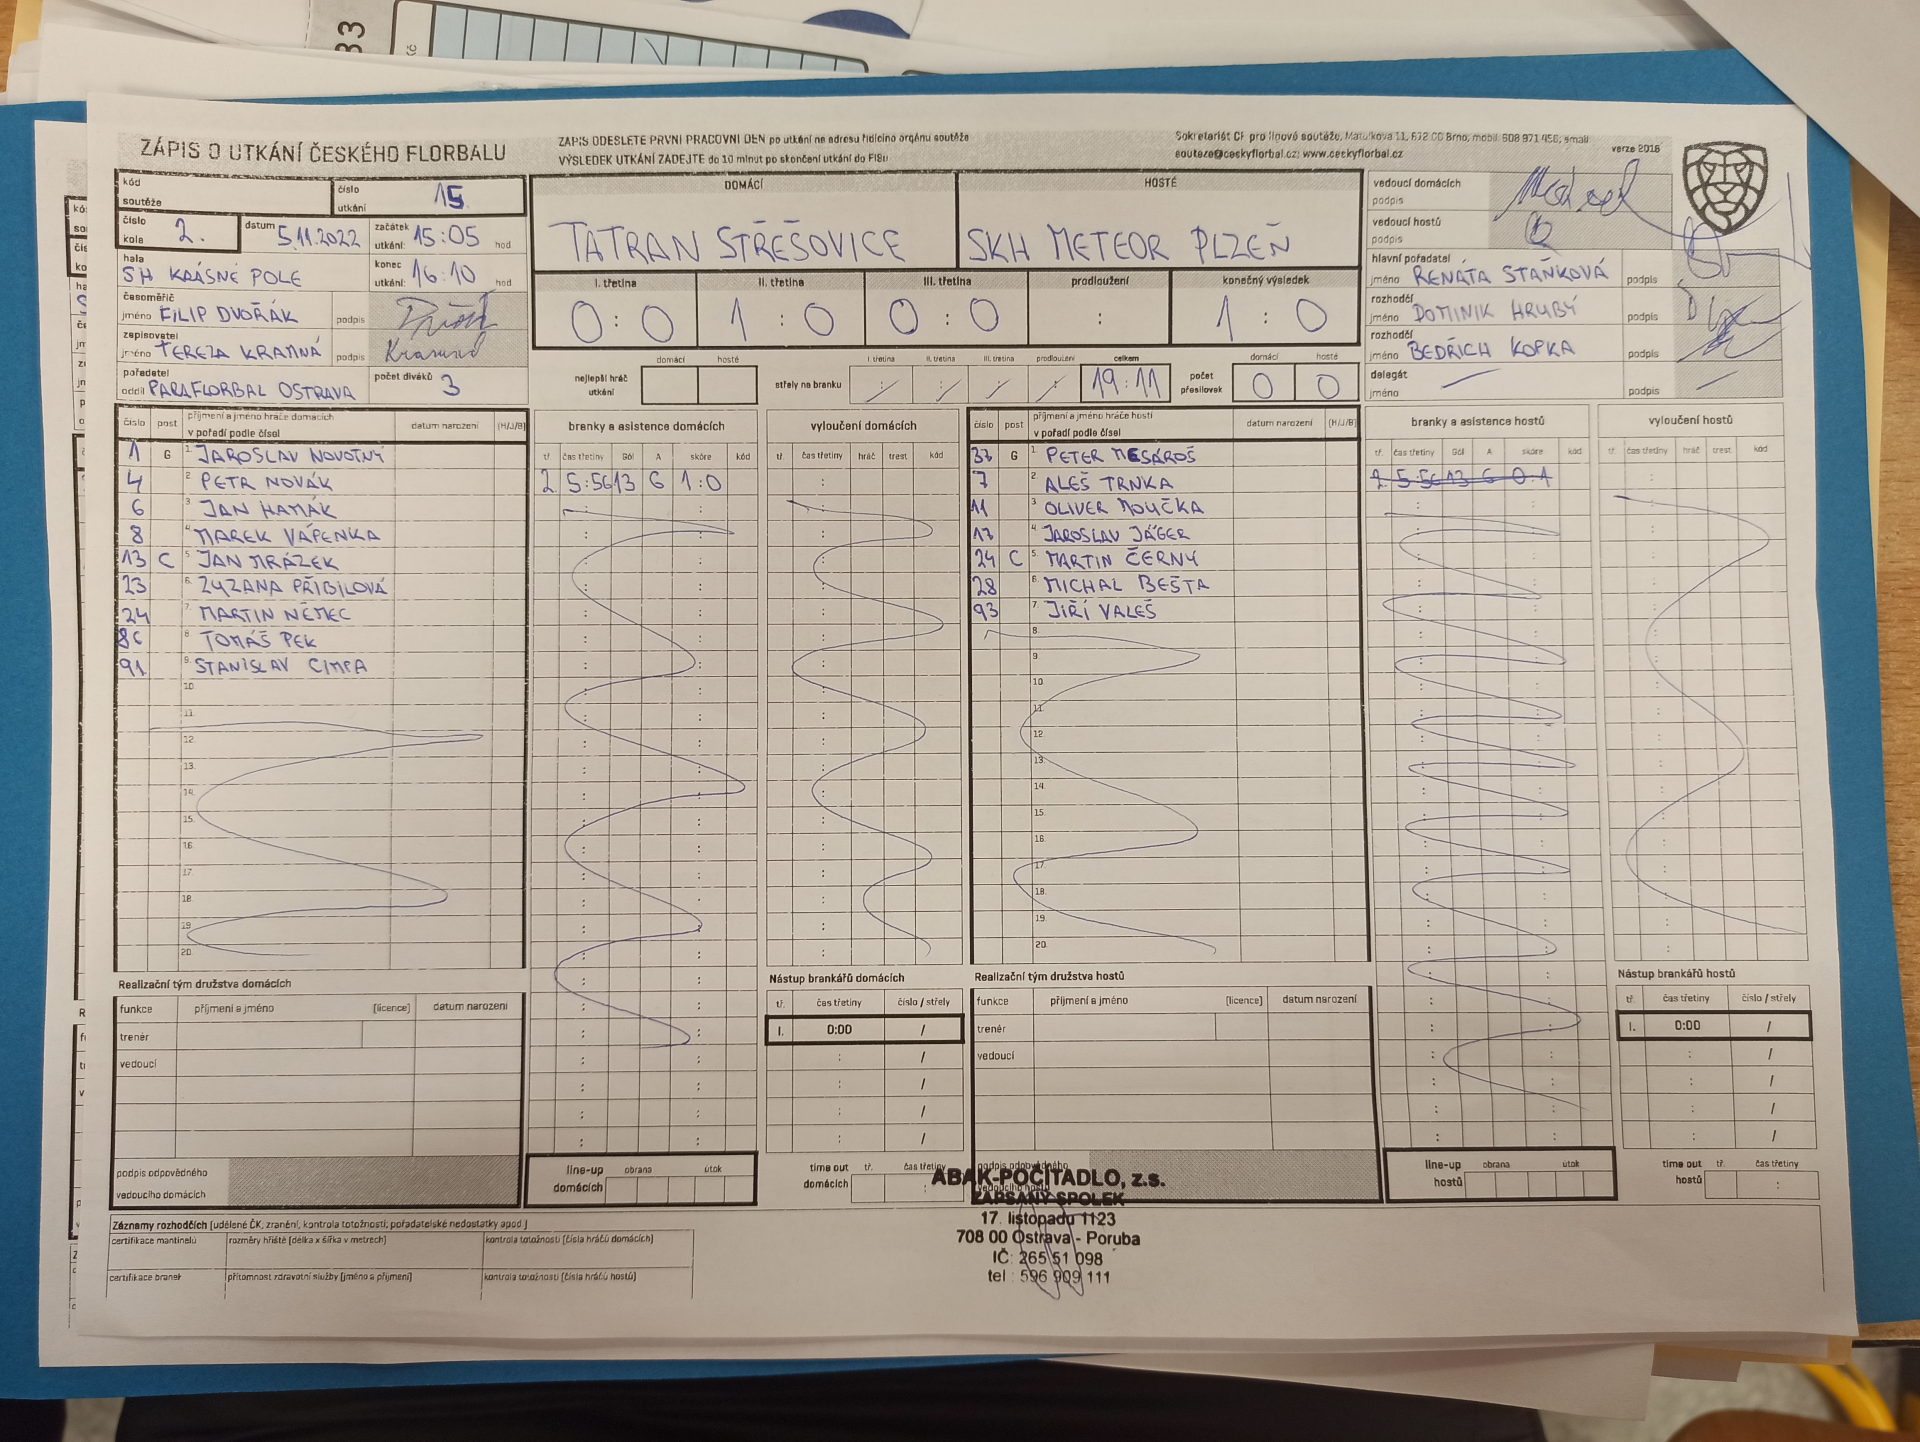 33
ZÁPIS O UTKÁNÍ ČESKÉHO FLORBALU
ZÁPIS ODEŠLETE PRVNÍ PRACOVNÍ DEN po utkání na adresu řídícího orgánu soutěže
VÝSLEDEK UTKÁNÍ ZADEJTE do 10 minut po skončení utkání do FISu
Sekretariát ČF pro ligové soutěže, Maťulkova 11, 672 00 Brno, mobil 608 971 456; email
soutez@ceskyflorbal.cz; www.ceskyflorbal.cz
verze 2016
kód soutěže
číslo utkání 15
číslo kola 2.
datum 5.11.2022
začátek utkání: 15:05 hod
hala SH KRÁSNÉ POLE
konec utkání: 16:10 hod
časoměřič jméno FILIP DVOŘÁK podpis
zapisovatel jméno TEREZA KRAMNÁ podpis Kramná
pořadatel oddíl PARAFLORBAL OSTRAVA
počet diváků 3
DOMÁCÍ
TATRAN STŘEŠOVICE
HOSTÉ
SKH METEOR PLZEŇ
I. třetina II. třetina III. třetina prodloužení konečný výsledek
0 : 0 1 : 0 0 : 0 : 1 : 0
nejlepší hráč utkání domácí hosté
střely na branku I. třetina II. třetina III. třetina prodloužení celkem
: : : : 19:11
počet přesilovek domácí hosté
0 0
vedoucí domácích podpis
vedoucí hostů podpis
hlavní pořadatel
jméno RENÁTA STAŇKOVÁ podpis
rozhodčí
jméno DOMINIK HRUBÝ podpis
rozhodčí
jméno BEDŘICH KOPKA podpis
delegát
jméno podpis
číslo post příjmení a jméno hráče domácích v pořadí podle čísel datum narození (H/J/B)
1 G 1. JAROSLAV NOVOTNÝ
4 2. PETR NOVÁK
6 3. JAN HAMÁK
8 4. MAREK VÁPENKA
13 C 5. JAN MRÁZEK
23 6. ZUZANA PŘIBILOVÁ
24 7. MARTIN NĚMEC
86 8. TOMÁŠ PEK
91 9. STANISLAV CIMPA
10.
11.
12.
13.
14.
15.
16.
17.
18.
19.
20.
branky a asistence domácích
tř. čas třetiny Gól A skóre kód
2 5:56 13 6 1:0
vyloučení domácích
tř. čas třetiny hráč trest kód
číslo post příjmení a jméno hráče hostí v pořadí podle čísel datum narození (H/J/B)
37 G 1. PETER MESÁROŠ
7 2. ALEŠ TRNKA
11 3. OLIVER MOUČKA
17 4. JAROSLAV JÄGER
24 C 5. MARTIN ČERNÝ
28 6. MICHAL BEŠTA
93 7. JIŘÍ VALEŠ
8.
9.
10.
11.
12.
13.
14.
15.
16.
17.
18.
19.
20.
branky a asistence hostů
tř. čas třetiny Gól A skóre kód
2 5:56 13 6 0:1
vyloučení hostů
tř. čas třetiny hráč trest kód
Realizační tým družstva domácích
funkce příjmení a jméno [licence] datum narození
trenér
vedoucí
podpis odpovědného
vedoucího domácích
line-up domácích obrana útok
Nástup brankářů domácích
tř. čas třetiny číslo / střely
I. 0:00 /
time out domácích tř. čas třetiny
Realizační tým družstva hostů
funkce příjmení a jméno [licence] datum narození
trenér
vedoucí
podpis odpovědného
vedoucího hostů
line-up hostů obrana útok
Nástup brankářů hostů
tř. čas třetiny číslo / střely
I. 0:00 /
time out hostů tř. čas třetiny
ABAK-POČÍTADLO, z.s.
ZAPSANÝ SPOLEK
17. listopadu 1123
708 00 Ostrava - Poruba
IČ: 265 51 098
tel.: 596 909 111
Záznamy rozhodčích (udělené ČK, zranění, kontrola totožnosti, pořadatelské nedostatky apod.)
certifikace mantinelů rozměry hřiště (délka x šířka v metrech) kontrola totožnosti (čísla hráčů domácích)
certifikace branek přítomnost zdravotní služby (jméno a příjmení) kontrola totožnosti (čísla hráčů hostů)